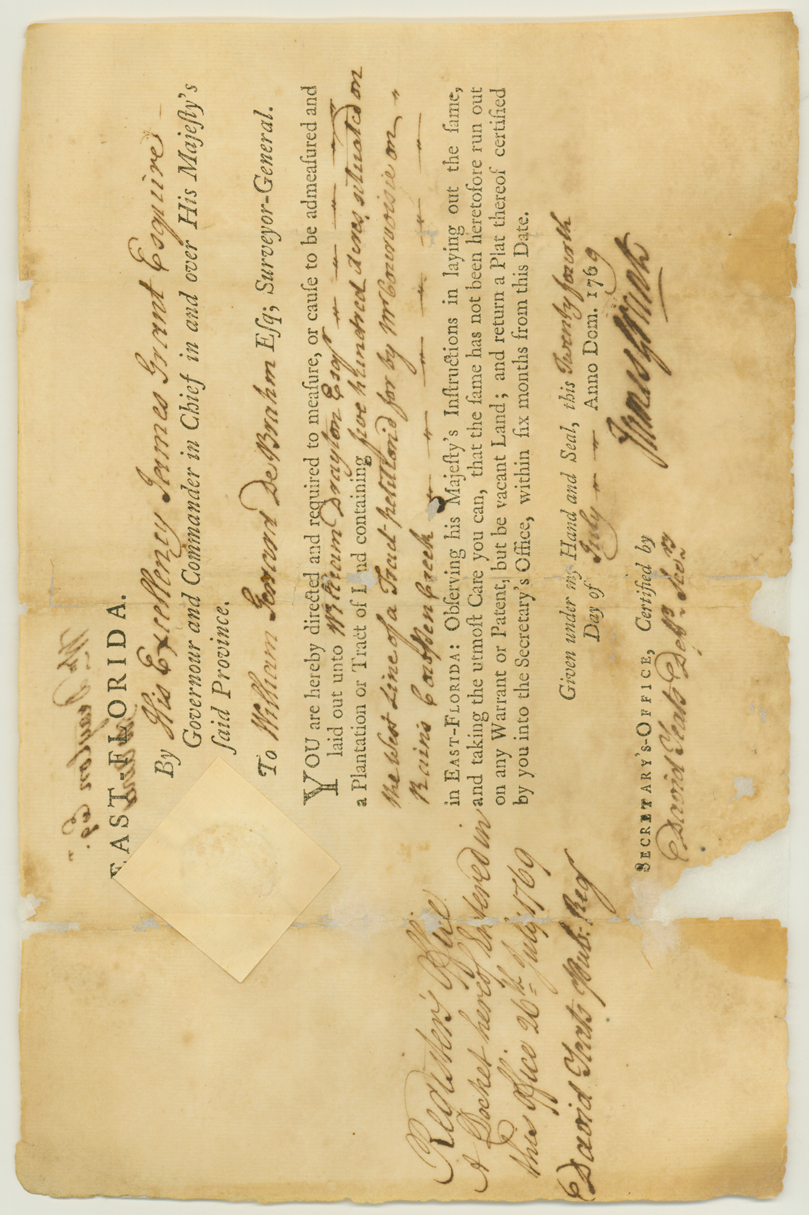 EAST-FLORIDA.
By His Excellency James Grant Esquire
Governour and Commander in Chief in and over His Majeſty's
ſaid Province.
To William Gerard De Brahm Eſq; Surveyor-General.
YOU are hereby directed and required to meaſure, or cauſe to be admeaſured and
laid out unto William Drayton Esqr
a Plantation or Tract of L nd containing five hundred Acres situated on
the West Line of a Tract petitiond for by Mr
in EAST-FLORIDA: Obſerving his Majeſty's Inſtructions in laying out the ſame,
and taking the utmoſt Care you can, that the ſame has not been heretofore run out
on any Warrant or Patent, but be vacant Land; and return a Plat thereof certified
by you into the Secretary's Office, within ſix months from this Date.
Given under my Hand and Seal, this Twenty fourth
Day of July Anno Dom. 1769
James Grant
SECRETARY'S-OFFICE, Certified by
David Yeats Depy Secry
Register's Office
A Docket hereof Entered in
this Office 26th July 1769
David Yeats Pub: Reg